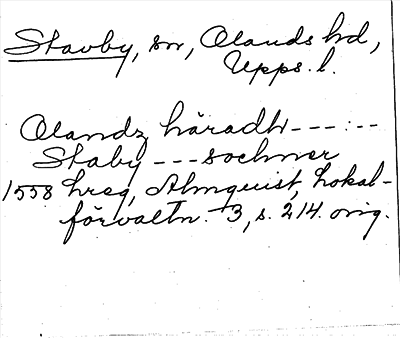 Stavby, sn, Olands hd,
Upps. l.
Olandz häradh ---:--
Staby --- sochner
1558 hreg, Almquist, Lokal-
förvaltn. 3, s. 214. orig.